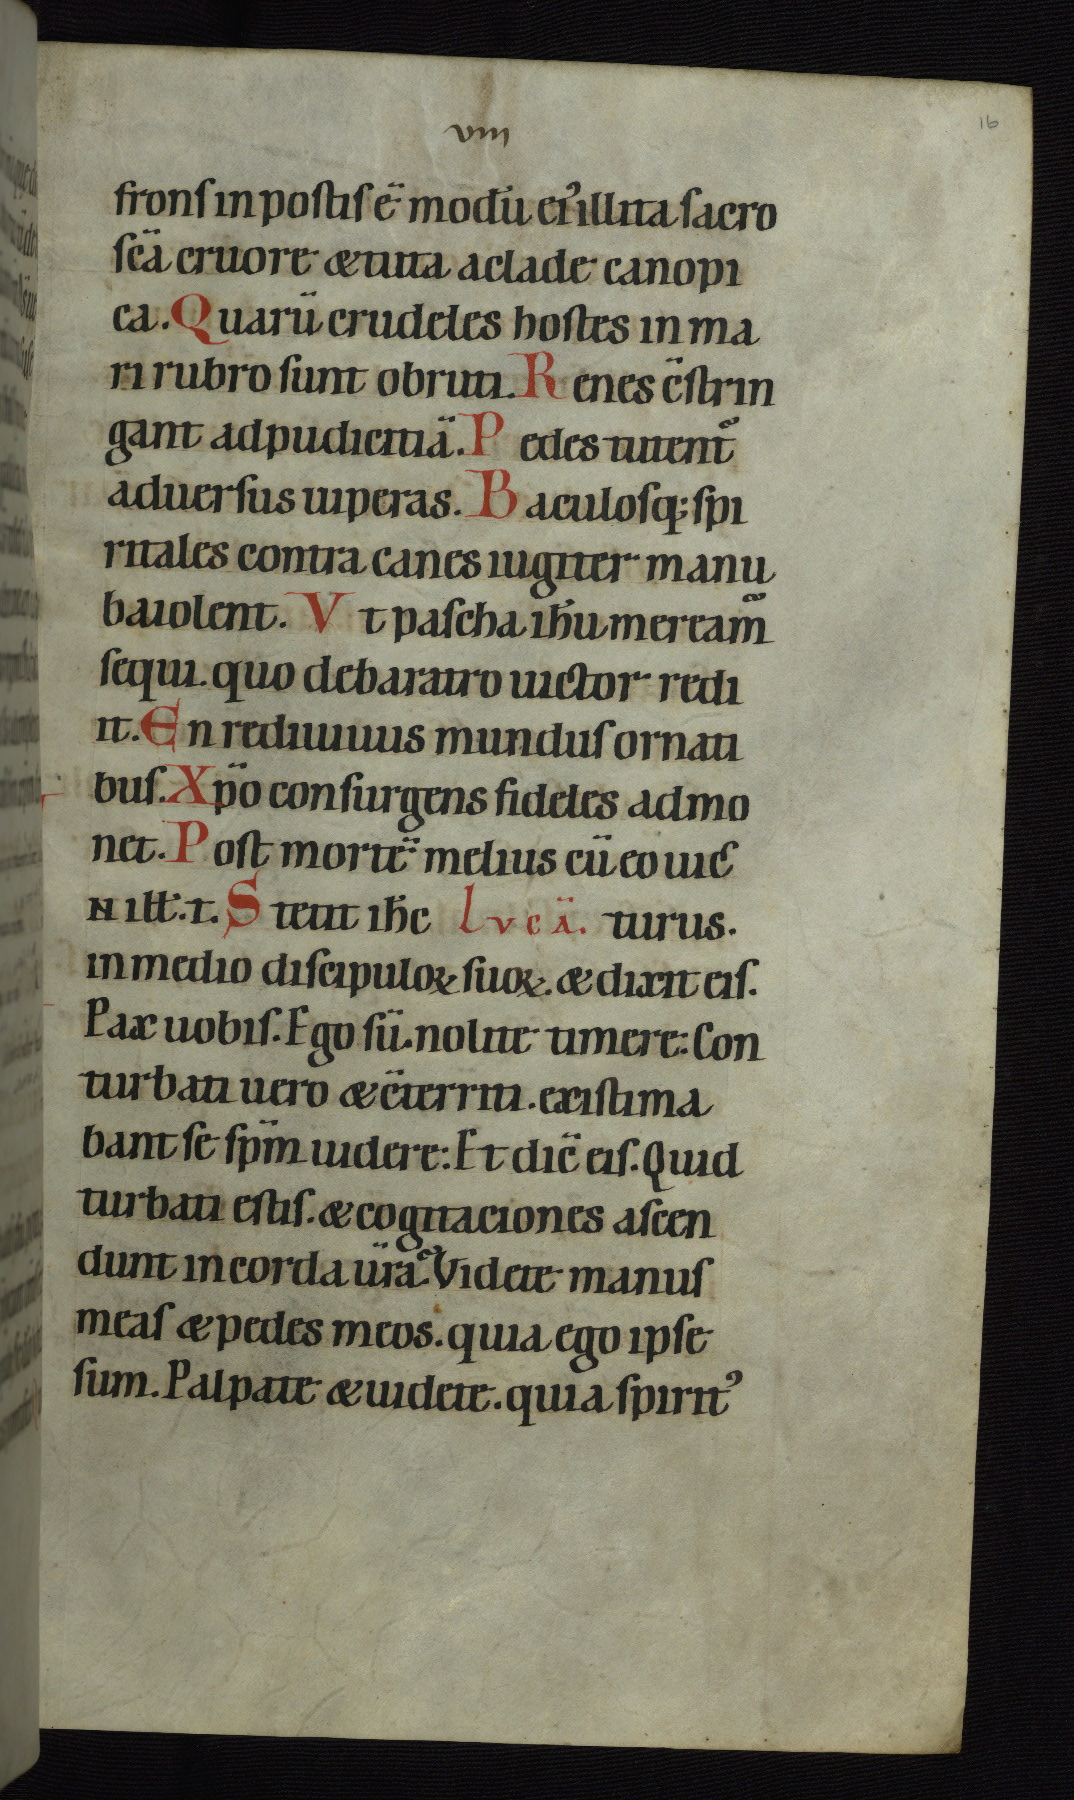 viii
16
fronſ in poſtiſ ē modū eiꝰ illita ſacro
ſcā cruore & tuta a clade canopi
ca. Quarū crudeles hoſtes in ma
ri rubro ſunt obruti. Renes c̄ſtrin
gant ad pudicitiā. Pedes tutent᷑
aduerſus uiperas. Baculoſq; ſpi
ritales contra canes iugiter manu
baiolent. Vt paſcha ih̄u meream᷑
ſequi. quo de baratro uictor redi
it. En rediuiuus munduſ ornati
buſ. Xp̄o conſurgens fideles admo
net. Poſt mortē melius cū eo uic
N ill̄. t. Stetit ih̄c Lvcā. turus.
in medio diſcipuloꝝ ſuoꝝ. & dixit eiſ.
Pax uobiſ. Ego ſū. nolite timere: Con
turbati uero & c̄territi. exiſtima
bant ſe ſpm̄ uidere: Et dic̄ eiſ. Quid
turbati eſtiſ. & cogitaciones aſcen
dunt in corda ūra. Videte manuſ
meaſ & pedes meos. quia ego ipſe
ſum. Palpate & uidete. quia ſpiritꝰ